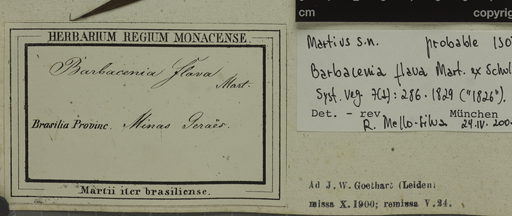 HERBARIUM REGIUM MONACENSE.
Barbacenia flava
Mart.
Brasilia Provinc. Minas Geraës.
Martii iter brasiliense.
cm copyrig
Martius s.n. probable Iso
Barbacenia flava Mart. ex Schul
Syst. Veg. 7(1): 286. 1829 ("1826").
Det. - rev München
R. Mello-Silva 24.IV.200
Ad J. W. Goethart (Leiden)
missa X.1900; remissa V.24.